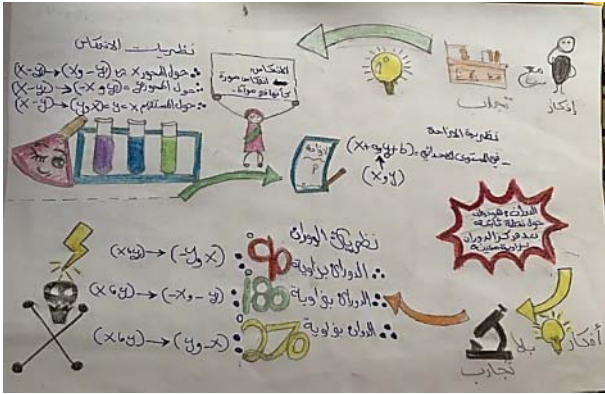 نظريات الانعكاس
حول المحور x (x-y)→(xو-y)
حول المحور y (x-y)→(-xوy)
حول المستقيم y=x (x-y)→(yوx)
الانعكاس:
انعكاس صورة
كأنها في مرآة
مع
إفكار
تجارب
نظرية الإزاحة
في المستوى الإحداثي (x+aوy+b)
(xوy)
الدوران: هو
حول نقطة ثابتة
مركز الدوران
بزاوية معينة
نظريات الدوران
الدوران بزاوية 90 (x6y)→(-yوx)
الدوران بزاوية 180 (x6y)→(-xو-y)
الدوران بزاوية 270 (x6y)→(yو-x)
أفكار
بلا
تجارب